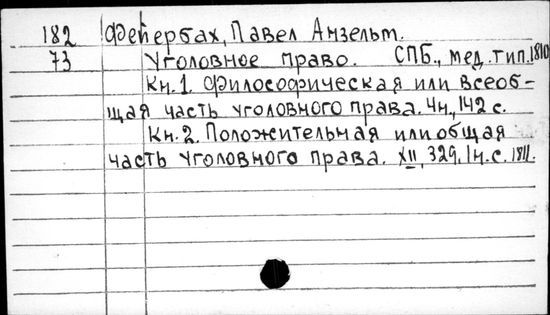 182 Фейербах, Павел Анзельм.
73 Уголовное право. СПБ., мед. тип. 1810
Кн. 1. Философическая или всеоб-
щая часть уголовного права. 4н., 142 с.
Кн. 2. Положительная или общая
часть уголовного права. XII, 329, 1н. с. 1811.